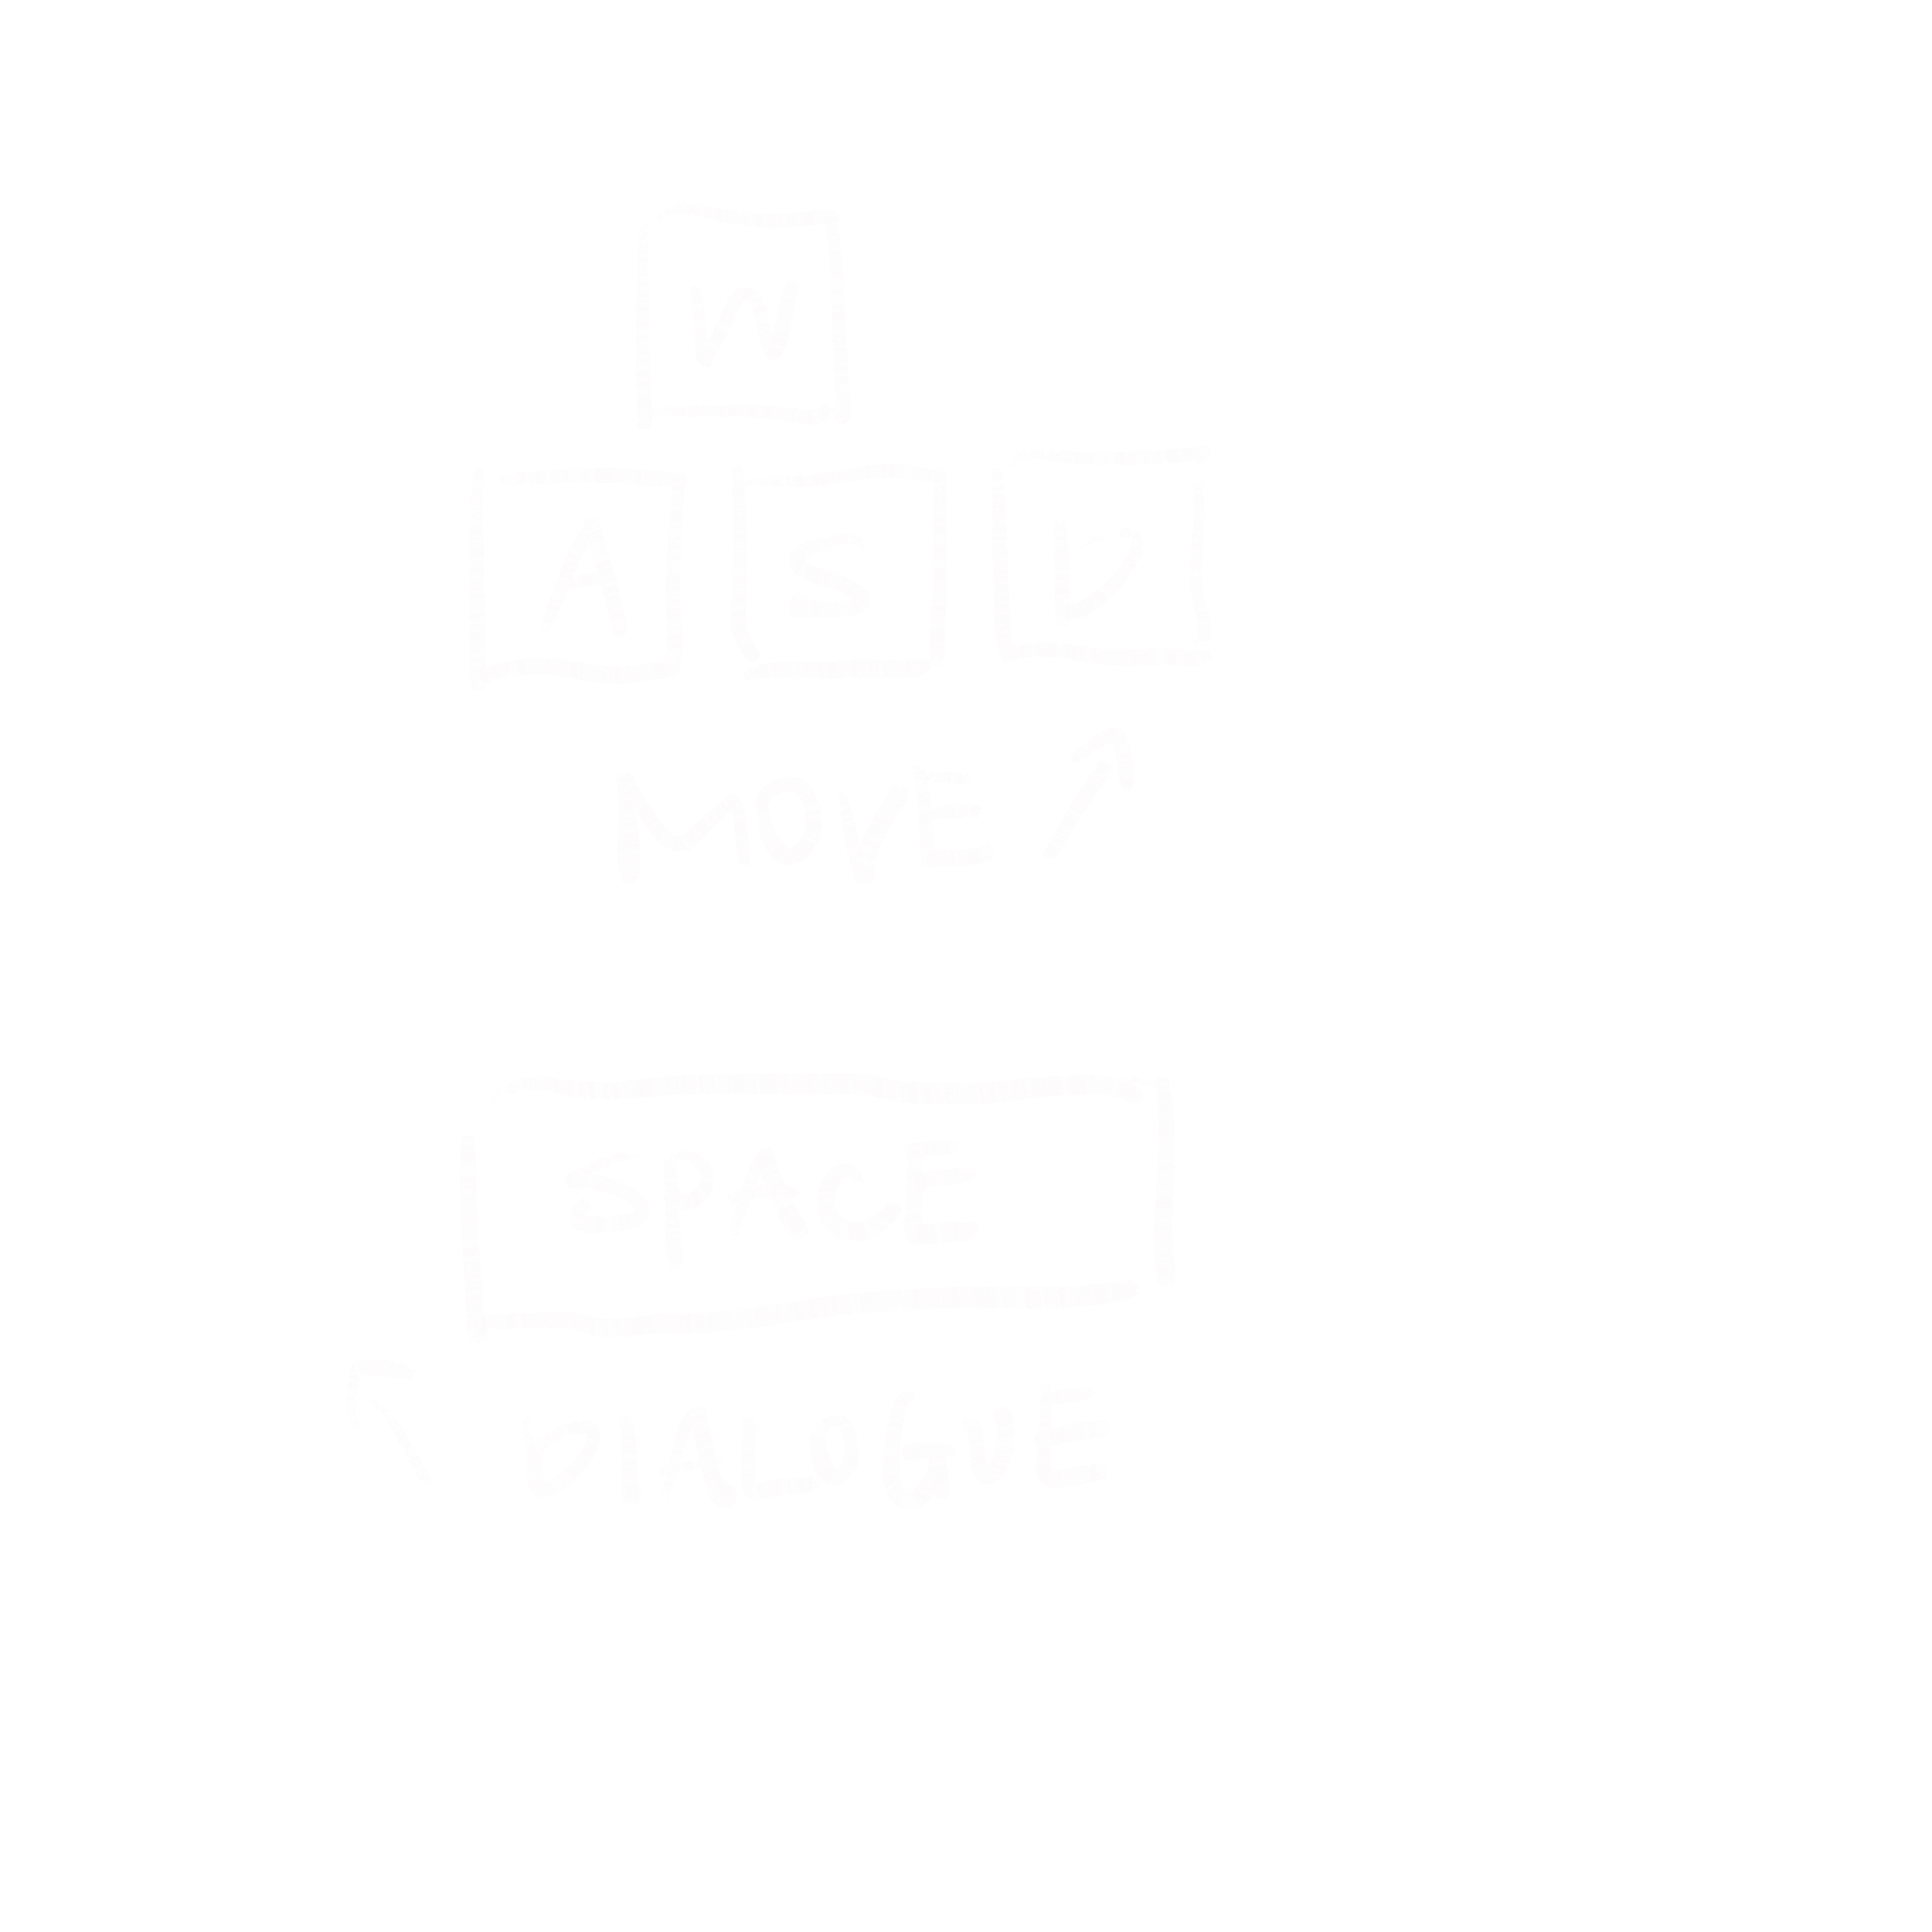 W
A S D
MOVE
SPACE
DIALOGUE